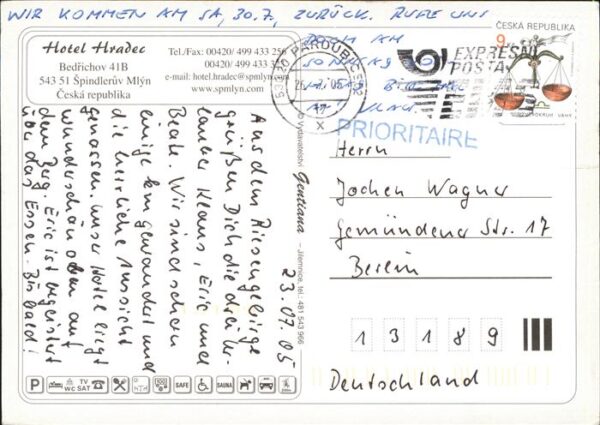 WIR KOMMEN AM SA, 30.7, ZURÜCK. RUFE UNS
DOCH AM
SONNTAG
AN.
Hotel Hradec
Bedřichov 41B
543 51 Špindlerův Mlýn
Česká republika
Tel./Fax: 00420/ 499 433 256
00420/ 499 433
e-mail: hotel.hradec@spmlyn.com
www.spmlyn.com
ČESKÁ REPUBLIKA
9
EXPRESNÍ
POŠTA
PARDUBICE
PRIORITAIRE
23.07.05
Aus dem Riesengebirge
grüßen Dich die drei Ur-
lauber Klaus, Eric und
Beate. Wir sind schon
einige km gewandert und
die herrliche Aussicht
genossen. Unser Hotel liegt
wunderschön oben auf
dem Berg. Eric ist begeistert
über das Essen. Bis bald!
© Vydavatelství Gentiana – Jilemnice, tel. 481 543 966
Herrn
Jochen Wagner
Gemündener Str. 17
Berlin
13189
Deutschland
P WC TV SAT SAFE SAUNA